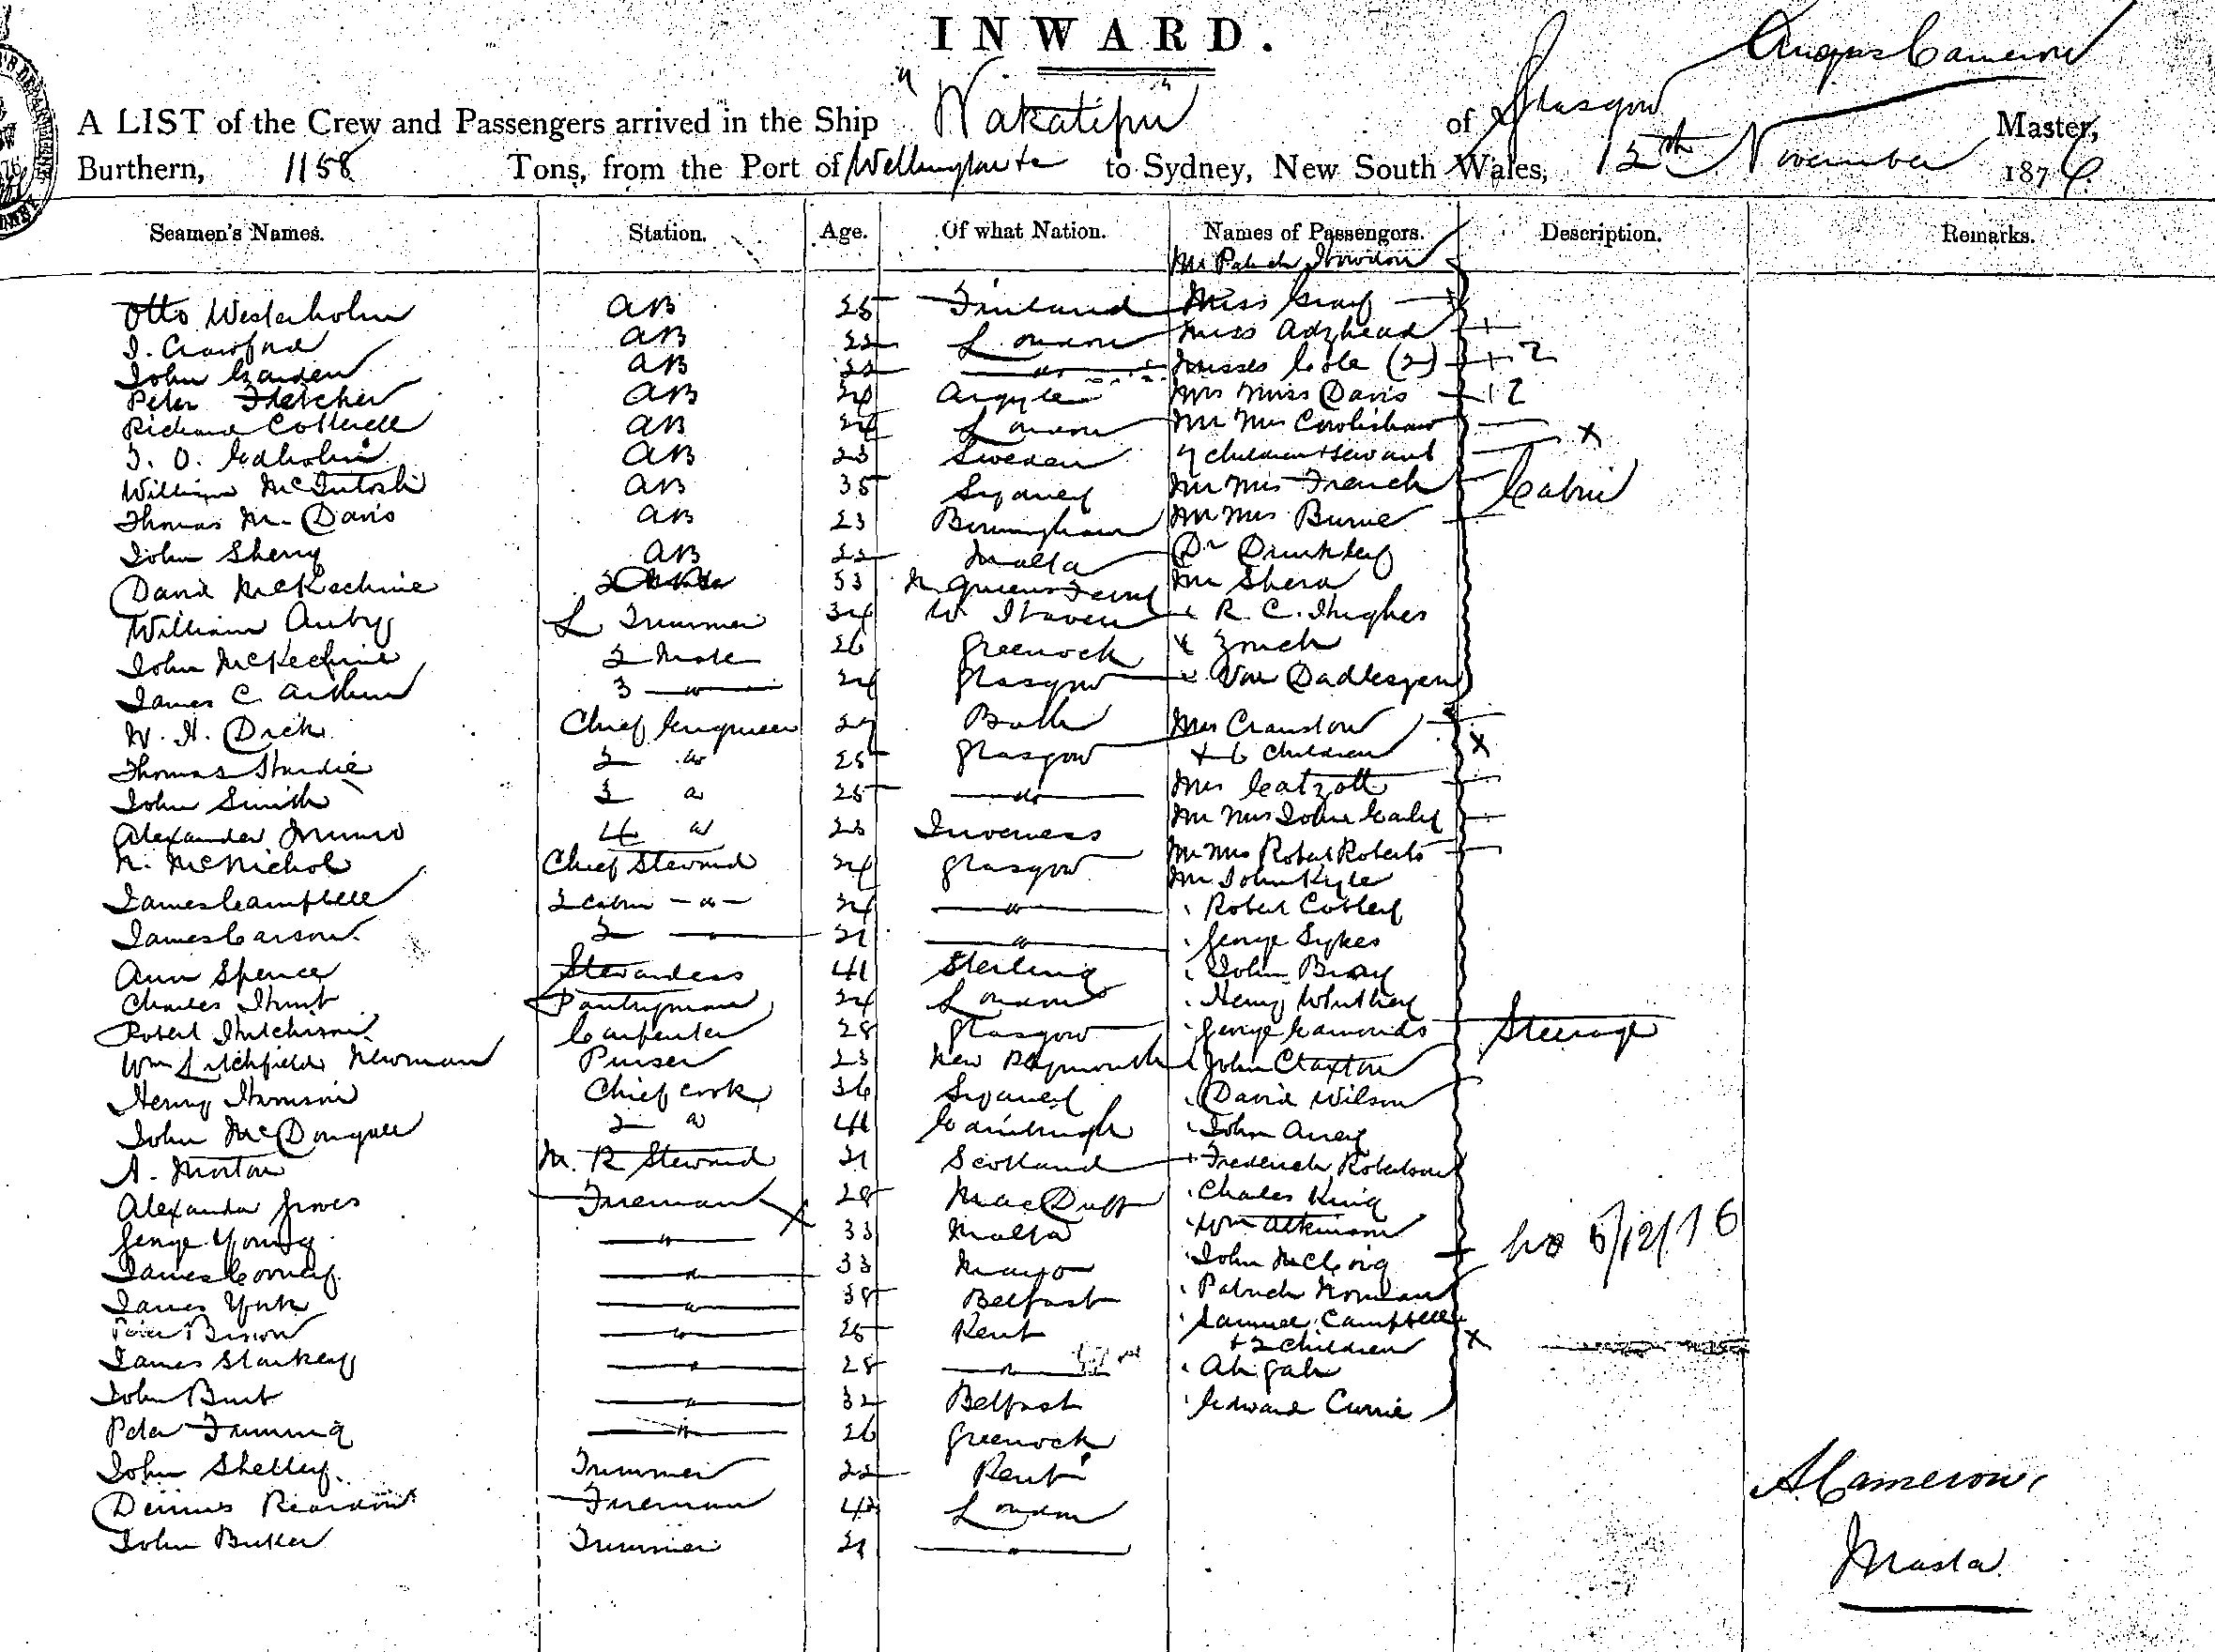 INWARD.
Angus Cameron
A LIST of the Crew and Passengers arrived in the Ship "Wakatipu" of Glasgow Master,
Burthern, 1158 Tons, from the Port of Wellington to Sydney, New South Wales, 12th November 1876
Seamen's Names. Station. Age. Of what Nation. Names of Passengers. Description. Remarks.
Mr Patrick
Otto Westerholm AB 25 Finland Miss Gray
J. Crawford AB 22 London Miss Adzhead
John AB 22 " Misses Cole (2) + 2
Peter Fletcher AB 24 Argyle Mrs Miss Davis 2
Richard Cotterell AB 24 London Mr Mrs Crolishaw
J. O. Edholm AB 23 Sweden 7 children + servant x
William McIntosh AB 35 Sydney Mr Mrs French Cabin
Thomas M. Davis AB 23 Birmingham Mr Mrs Burne
John Sherry AB 22 Malta Dr
David McKechnie 53 N Queens Ferry Mr Shera
William L Trimmer 34 W. Haven " R. C. Hughes
John McKechnie 2 Mate 26 Greenock " Zouch
James C. Arthur 3 " 24 Glasgow " Van
W. H. Dick Chief Engineer 27 Mrs Cranston
Thomas 2 " 25 Glasgow + 6 children x
John Smith 3 " 25 do Mrs
Alexander Munro 4 " 23 Inverness Mr Mrs John
N. McNichol Chief Steward 24 Glasgow Mr Mrs Robert Roberts
Mr John Kyle
James Campbell 2 cabin " 24 " " Robert
James Carson 2 " 21 " " George Sykes
Ann Spence Stewardess 41 Sterling " John Bray
Charles Hunt Pantryman 24 London " Henry
Robert Hutchison Carpenter 28 Glasgow " George Edmonds Steerage
Wm Litchfield Newman Purser 23 New Plymouth " John Claxton
Henry Chief cook 36 Sydney " David Wilson
John McDougall 2 " 41 Edinburgh " John
A. Morton M. R Steward 21 Scotland " Frederick Robertson
Alexander Fireman 28 MacDuff " Charles King
George Young " 33 Malta " Wm Atkinson
James " 33 Mayo " John 5/12/76
James York " 38 Belfast " Patrick
" 25 Kent " Samuel Campbell
+ 2 children x
James Starkey " 28 "
John Burt " 32 Belfast " Edward Currie
Peter Fanning " 26 Greenock
John Shelley Trimmer 22 Kent
Dennis Reardon Fireman 42 London
John Butler Trimmer 21 "
A. Cameron,
Master